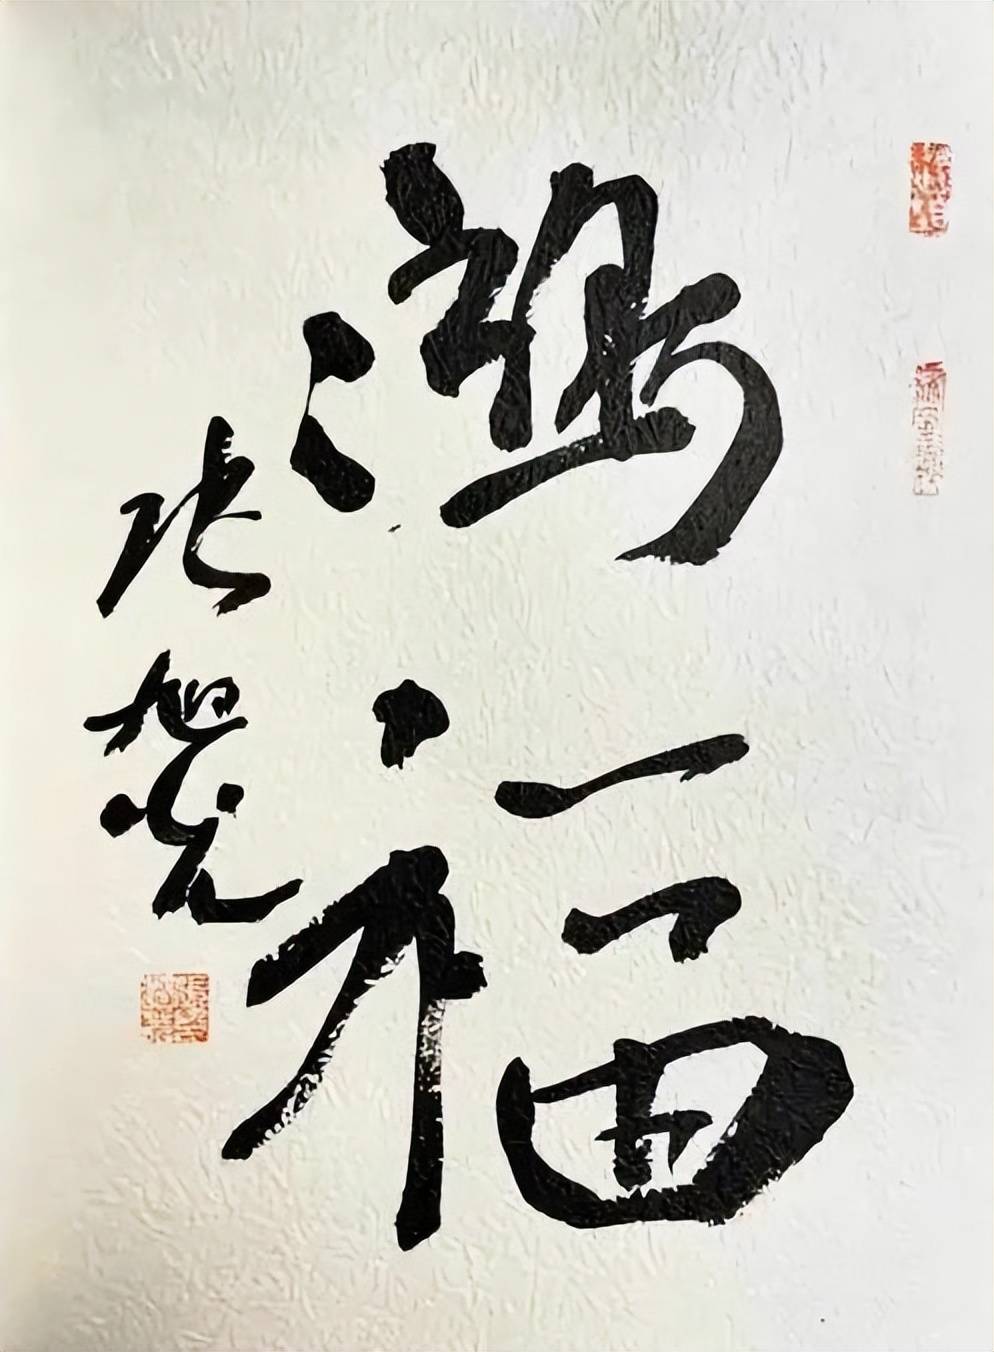 鴻福
张旭光